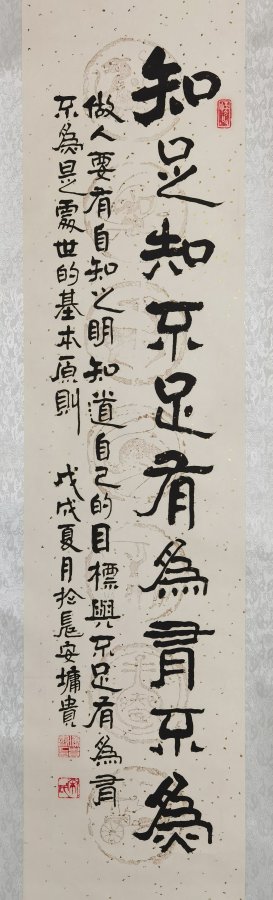 知足知不足有為有不為
做人要有自知之明知道自己的目標與不足有為有
不為是處世的基本原則
戊戌夏月於長安墉貴